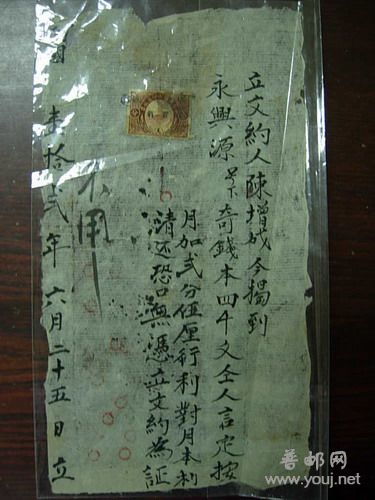 立文約人陳增成今揭到
永興源號下奇錢本四千文仝人言定按
月加弍分伍厘行利對月本利
清还恐口無憑立文約為証
壹拾弍年六月二十五日立
不用
普邮网
www.youj.net